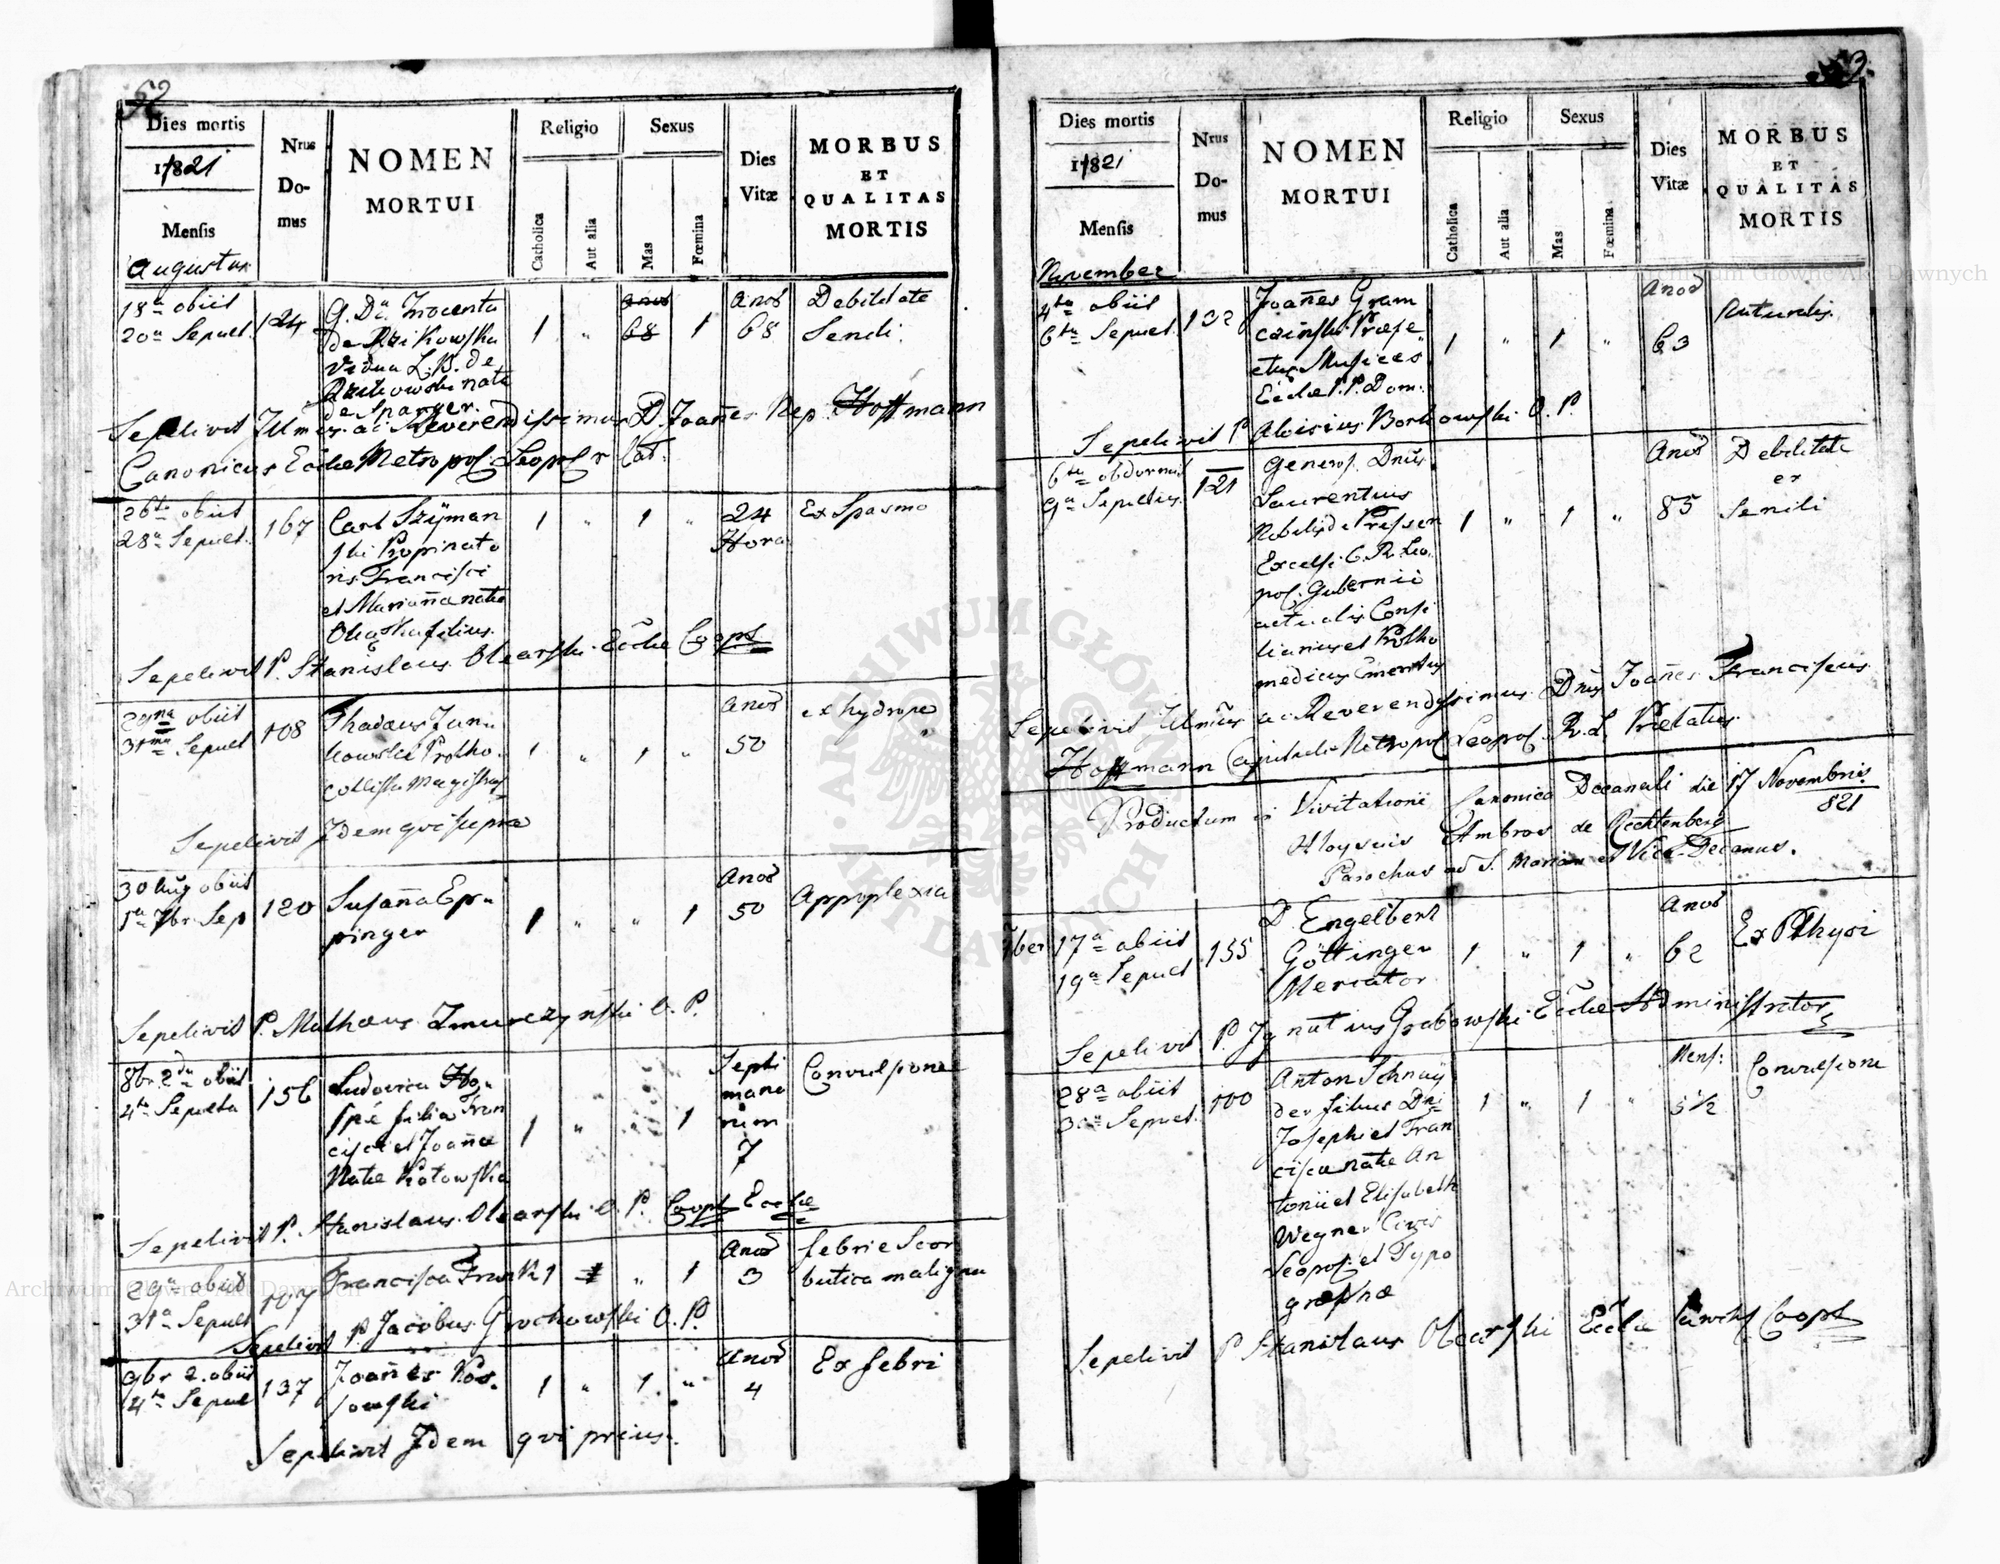 52
Dies mortis
Nrus
Do-
mus
NOMEN
MORTUI
Religio
Catholica
Aut alia
Sexus
Mas
Fœmina
Dies
Vitæ
MORBUS
ET
QUALITAS
MORTIS
1821
Mensis
Augustus
18a obiit
20a Sepult.
124
G. Da. Inocenta
de
Vidua L. B. de
nata
de Spanger.
1
"
68
1
Anos
68
Debilitate
Senili.
Sepelivit Illmus ac Reverendissimus D. Joañes Nep. Hoffmann
Canonicus Eccliæ Metropol. Leopol. r. Lat.
26ta obiit
28a Sepult.
167
Carl Szÿman
ski Propinato
ris Francisci
et Mariañæ natæ
filius.
1
"
1
"
24
Hora
Ex Spasmo
Sepelivit P. Stanislaus Olearski Eccliæ Coopt
29na obiit
31ma Sepult
108
Thadæus Jan
kowski Protho
collista Magistrat
1
"
1
"
Anos
50
ex hydrope
Sepelivit Idem qui supra
30 Aug obiit
1a 7br. Sep
120
Susaña Ep
pinger
1
"
"
1
Anos
50
Appoplexia
Sepelivit P. Mathæus Zmurczynski O. P.
8br. 2da obiit
4ta Sepulta
156
Ludovica
filia Fran
cisci et Joañæ
Natæ Kotowska
1
"
1
Septi
mana
rum
7
Convulsione
Sepelivit P. Stanislaus Olearski O. P. Coopt Eccliæ
29a obiit
31a Sepult
107
Francisca Frank
1
"
1
Anos
3
febrie Scor
butica maligna
Sepelivit P. Jacobus Grochowski O. P.
9br 2. obiit
4ta Sepult
137
Joañes Kos
sowski
1
"
1
"
Anos
4
Ex febri
Sepelivit Idem qui prius.
53.
Dies mortis
Nrus
Do-
mus
NOMEN
MORTUI
Religio
Catholica
Aut alia
Sexus
Mas
Fœmina
Dies
Vitæ
MORBUS
ET
QUALITAS
MORTIS
1821
Mensis
November
4ta obiit
6ta Sepult.
132
Joañes Gram
czinski Præfe
ctus Musices
Eccliæ P. P. Dom.
1
"
1
"
Anos
63
Naturalis.
Sepelivit P. Aloisius Borkowski O. P.
6ta obdormit
9a Sepultus.
121
Generos. Dnus
Laurentius
Nobilis de Pressen
Excelsi C. R. Leo
pol. Gubernii
actualis Consi
liarius et Protho
medicus Emeritus
1
"
1
"
Anos
85
Debilitate
er
Senili
Sepelivit Illmus ac Reverendissimus Dnus Joañes Franciscus
Hoffmann Capituli Metropol Leopol. R. L. Prælatus.
Productum in Visitatione Canonica Decanali die 17 Novembris
821
Aloysius Ambros de Rechtenberg
Parochus ad S. Mariam et Vice-Decanus.
9ber 17a obiit
19a Sepult
155
D. Engelbert
Göttinger
Mercator
1
"
1
"
Anos
62
Ex Pthysi
Sepelivit P. Ignatius Grabowski Eccliæ Administrator
28a obiit
30a Sepult.
100
Anton Schnaÿ
der filius Dni
Josephi et Fran
ciscæ natæ An
tonii et Elisabeth
Wegner Civis
Leopol. et Typo
graphæ
1
"
1
"
Mens:
5 ½
Convulsione
Sepelivit P Stanislaus Olearski Eccliæ Coopt
Archiwum Główne Akt Dawnych
Archiwum Główne Akt Dawnych
ARCHIWUM GŁÓWNE AKT DAWNYCH